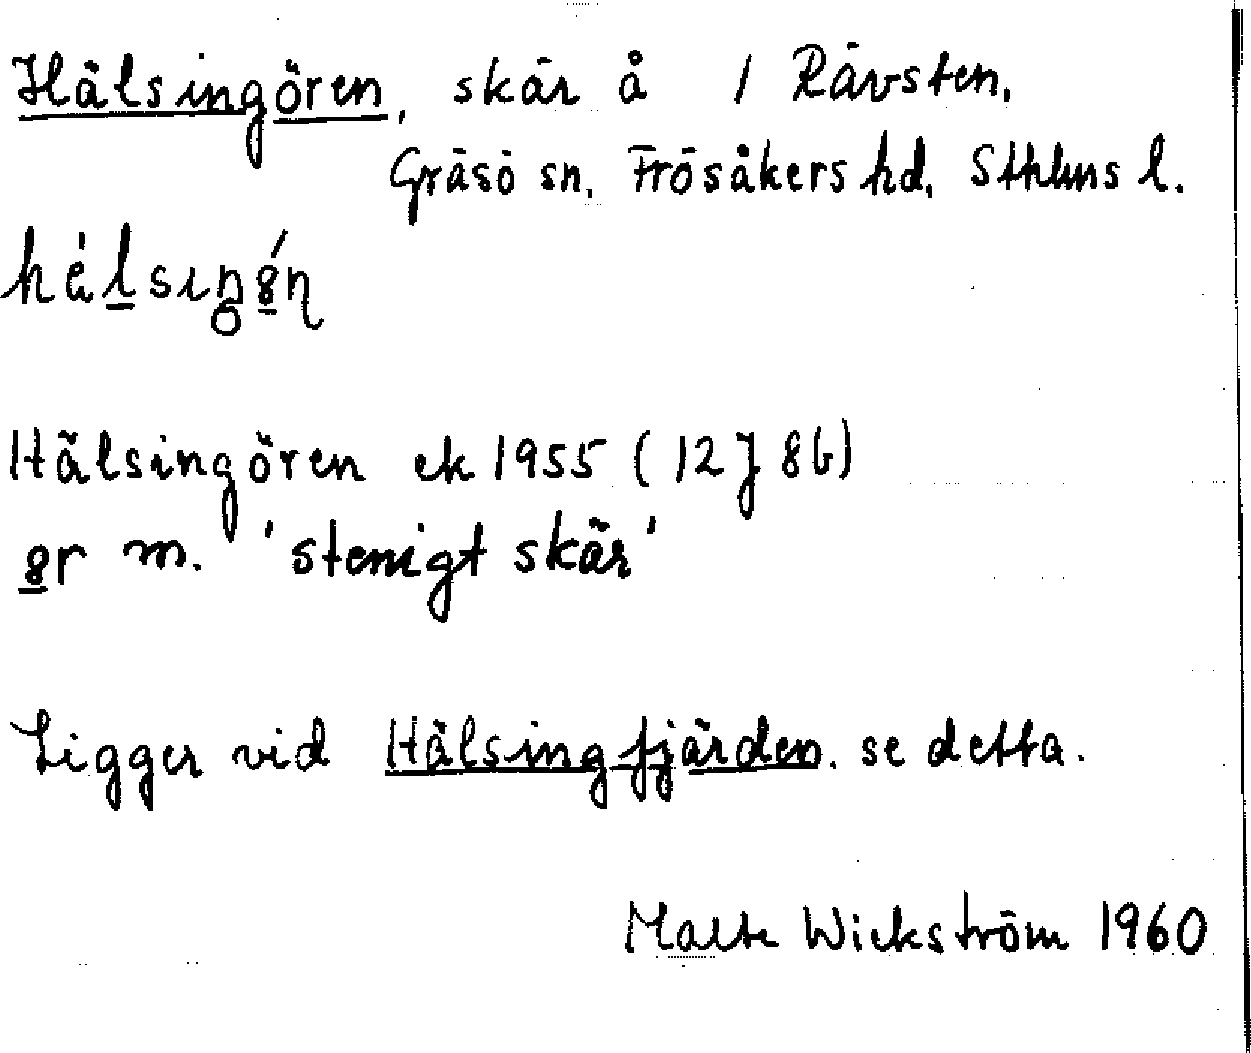 Hälsingören, skär å 1 Rävsten,
Gräsö sn, Frösåkers hd, Sthlms l.
Hälsingören ek 1955 (12J 8b)
m. 'stenigt skär'
Ligger vid Hälsingfjärden. se detta.
Malte Wickström 1960